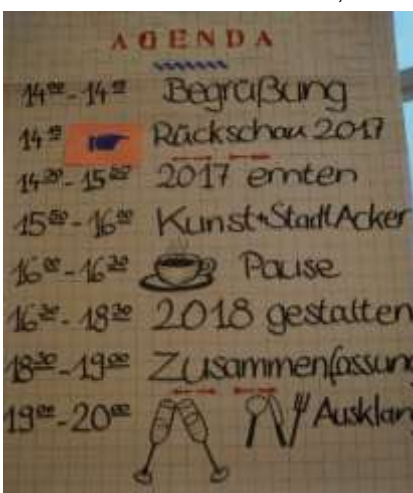 AGENDA
14⁰⁰ - 14¹⁰ Begrüßung
14¹⁰ Rückschau 2017
14³⁰ - 15⁵⁰ 2017 ernten
15⁵⁰ - 16⁰⁰ Kunst+Stadt(Acker
16⁰⁰ - 16³⁰ Pause
16³⁰ - 18³⁰ 2018 gestalten
18³⁰ - 19⁰⁰ Zusammenfassung
19⁰⁰ - 20⁰⁰ Ausklan